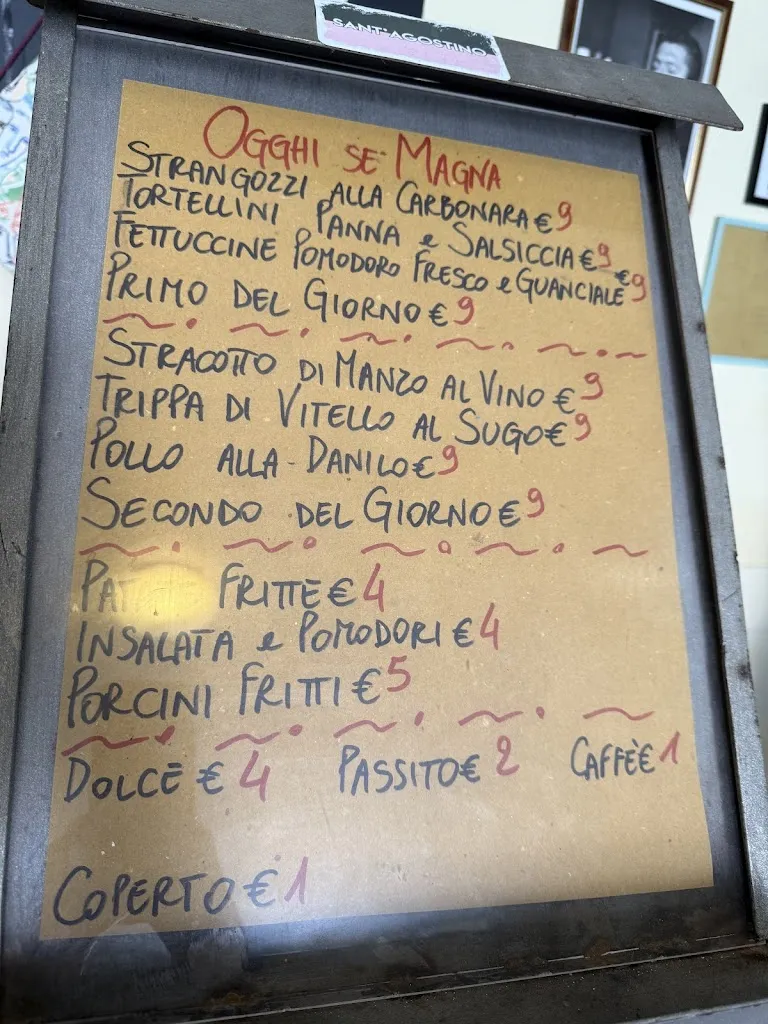 SANT'AGOSTINO
OGGHI SE MAGNA
STRANGOZZI ALLA CARBONARA € 9
TORTELLINI PANNA e SALSICCIA € 9
FETTUCCINE POMODORO FRESCO e GUANCIALE € 9
PRIMO DEL GIORNO € 9
STRACOTTO DI MANZO AL VINO € 9
TRIPPA DI VITELLO AL SUGO € 9
POLLO ALLA DANILO € 9
SECONDO DEL GIORNO € 9
FRITTE € 4
INSALATA e POMODORI € 4
PORCINI FRITTI € 5
DOLCE € 4 PASSITO € 2 CAFFÈ € 1
COPERTO € 1